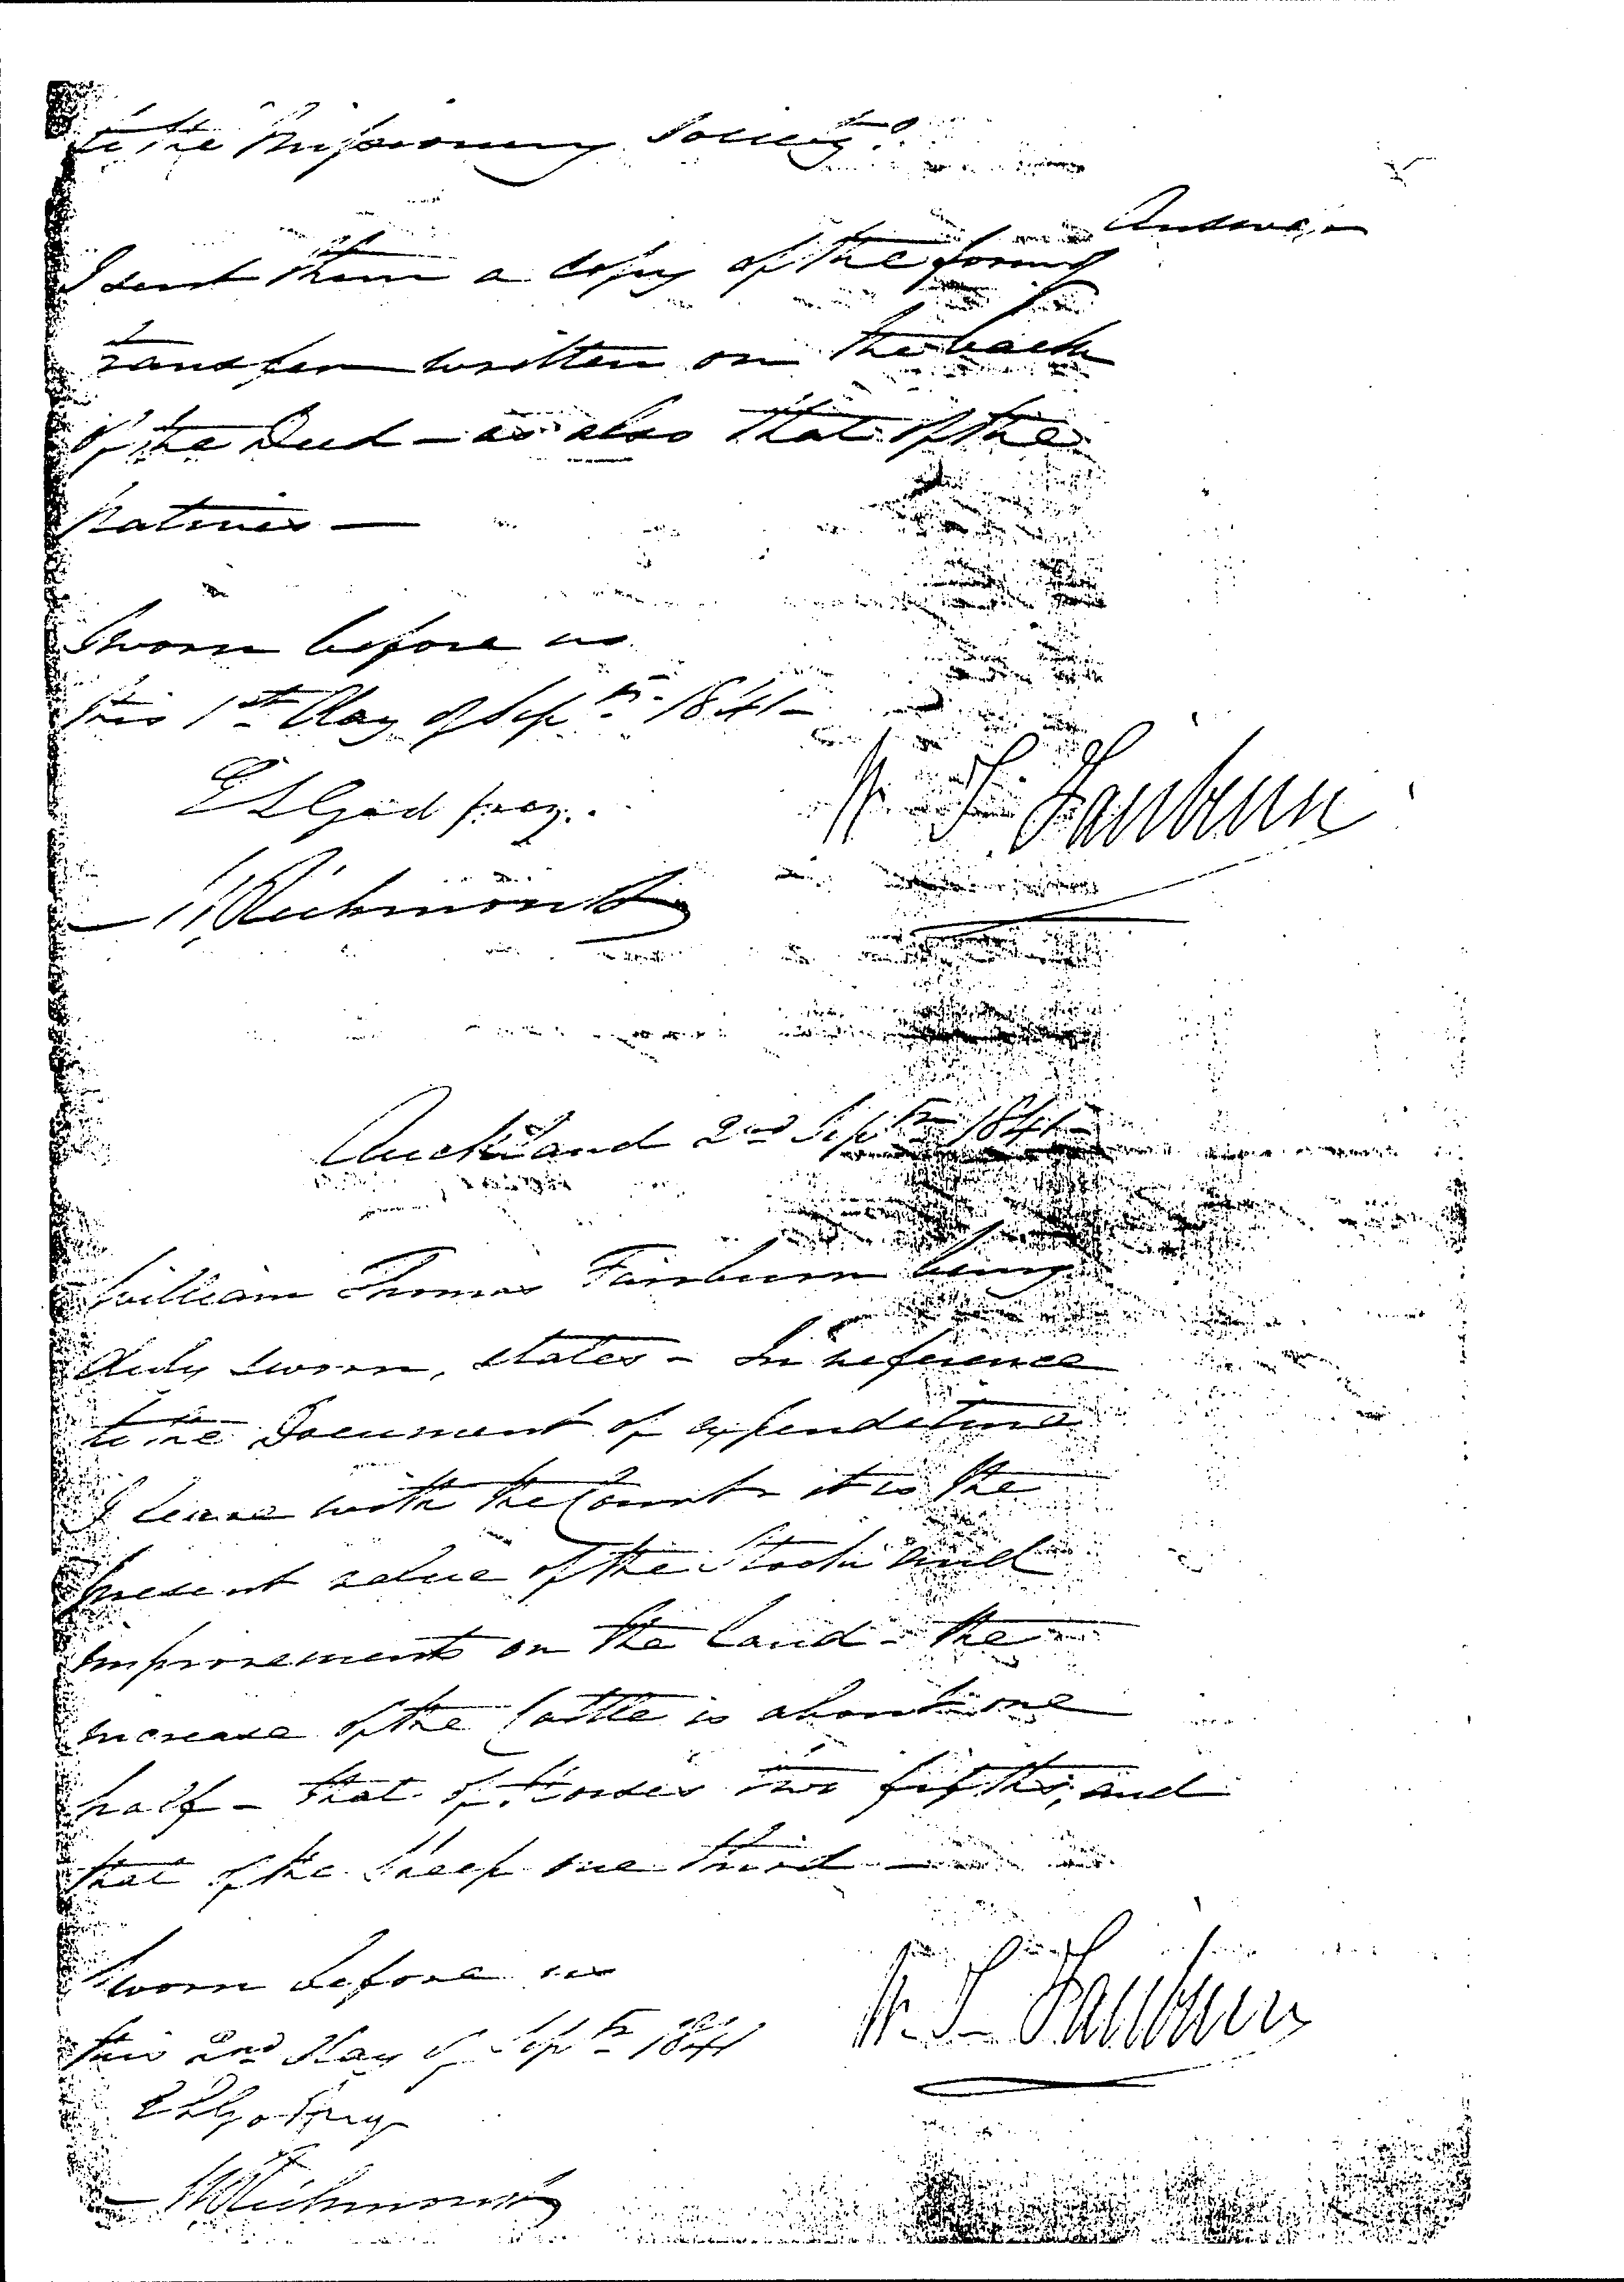 to the Missionary Society?
Answer –
I sent them a Copy of the form of
transfer written on the back
of the Deed – as also that of the
Natives —
Sworn before us
this 1st Day of Septr 1841 –
E L Godfrey.
M Richmond
W. T. Fairburn
Auckland 2nd Septr 1841 –
William Thomas Fairburn being
duly sworn, states – In reference
to the Document of expenditure
I leave with the Court it is the
present value of the Stock and
improvements on the land – the
increase of the Cattle is about one
half – that of Horses two fifths, and
that of the Sheep one third —
Sworn before us
this 2nd Day of Septr 1841
E L Godfrey
M Richmond
W. T. Fairburn